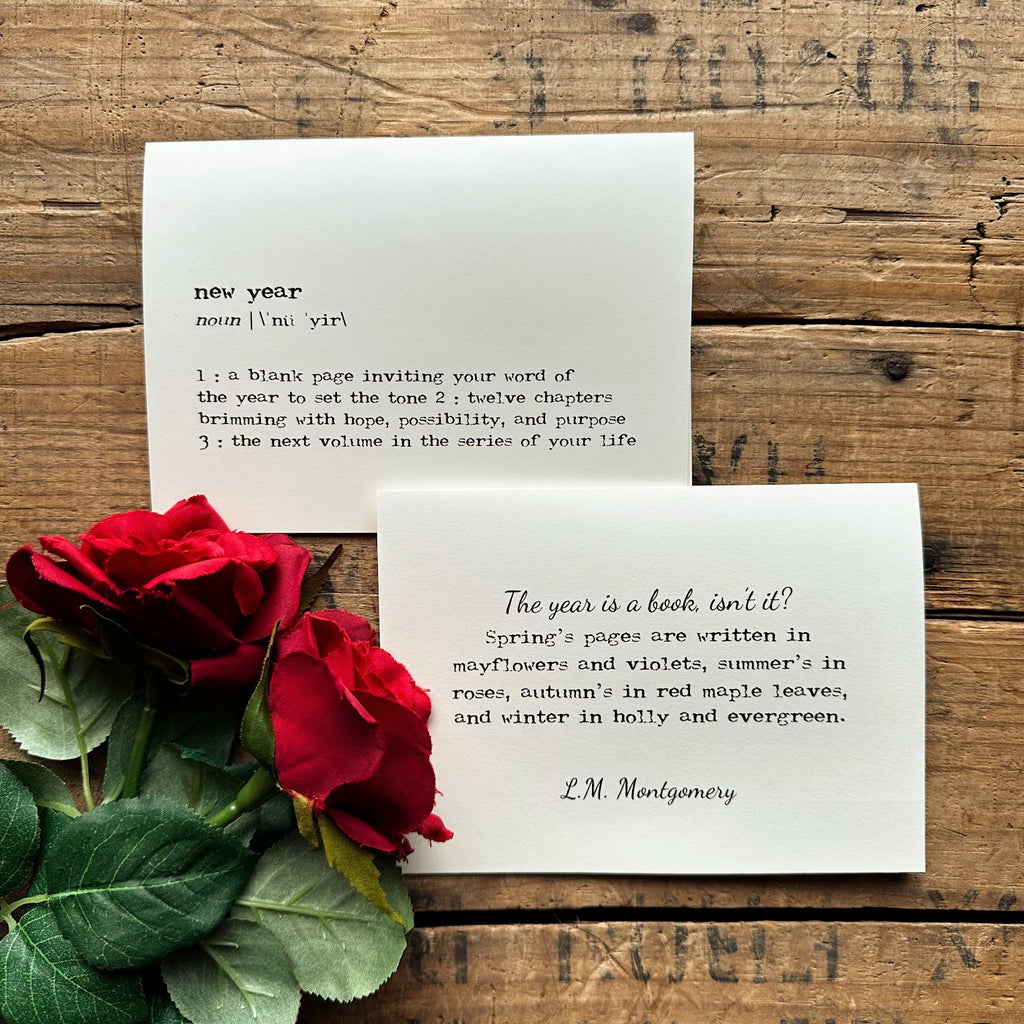 new year
noun | \ˈnü ˈyir\
1 : a blank page inviting your word of
the year to set the tone 2 : twelve chapters
brimming with hope, possibility, and purpose
3 : the next volume in the series of your life
The year is a book, isn't it?
Spring's pages are written in
mayflowers and violets, summer's in
roses, autumn's in red maple leaves,
and winter in holly and evergreen.
L.M. Montgomery